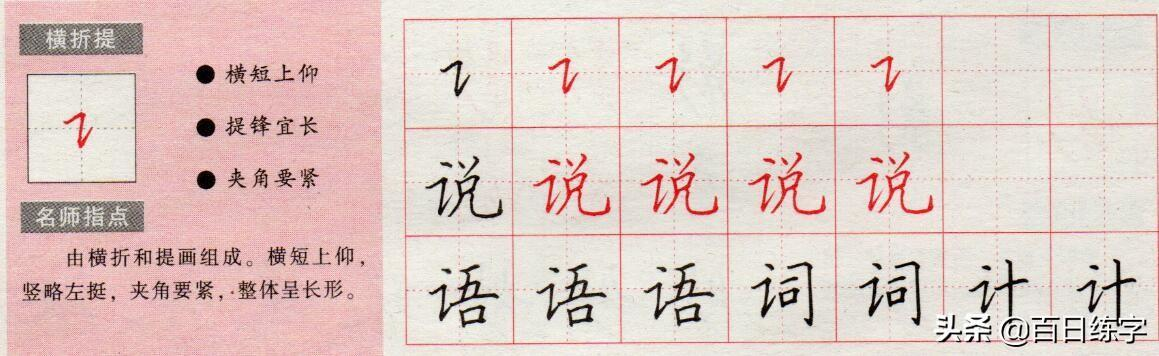 横折提
横短上仰
提锋宜长
夹角要紧
名师指点
由横折和提画组成。横短上仰，
竖略左挺，夹角要紧，整体呈长形。
㇊ ㇊ ㇊ ㇊ ㇊
说 说 说 说 说
语 语 语 词 词 计 计
头条 @百日练字